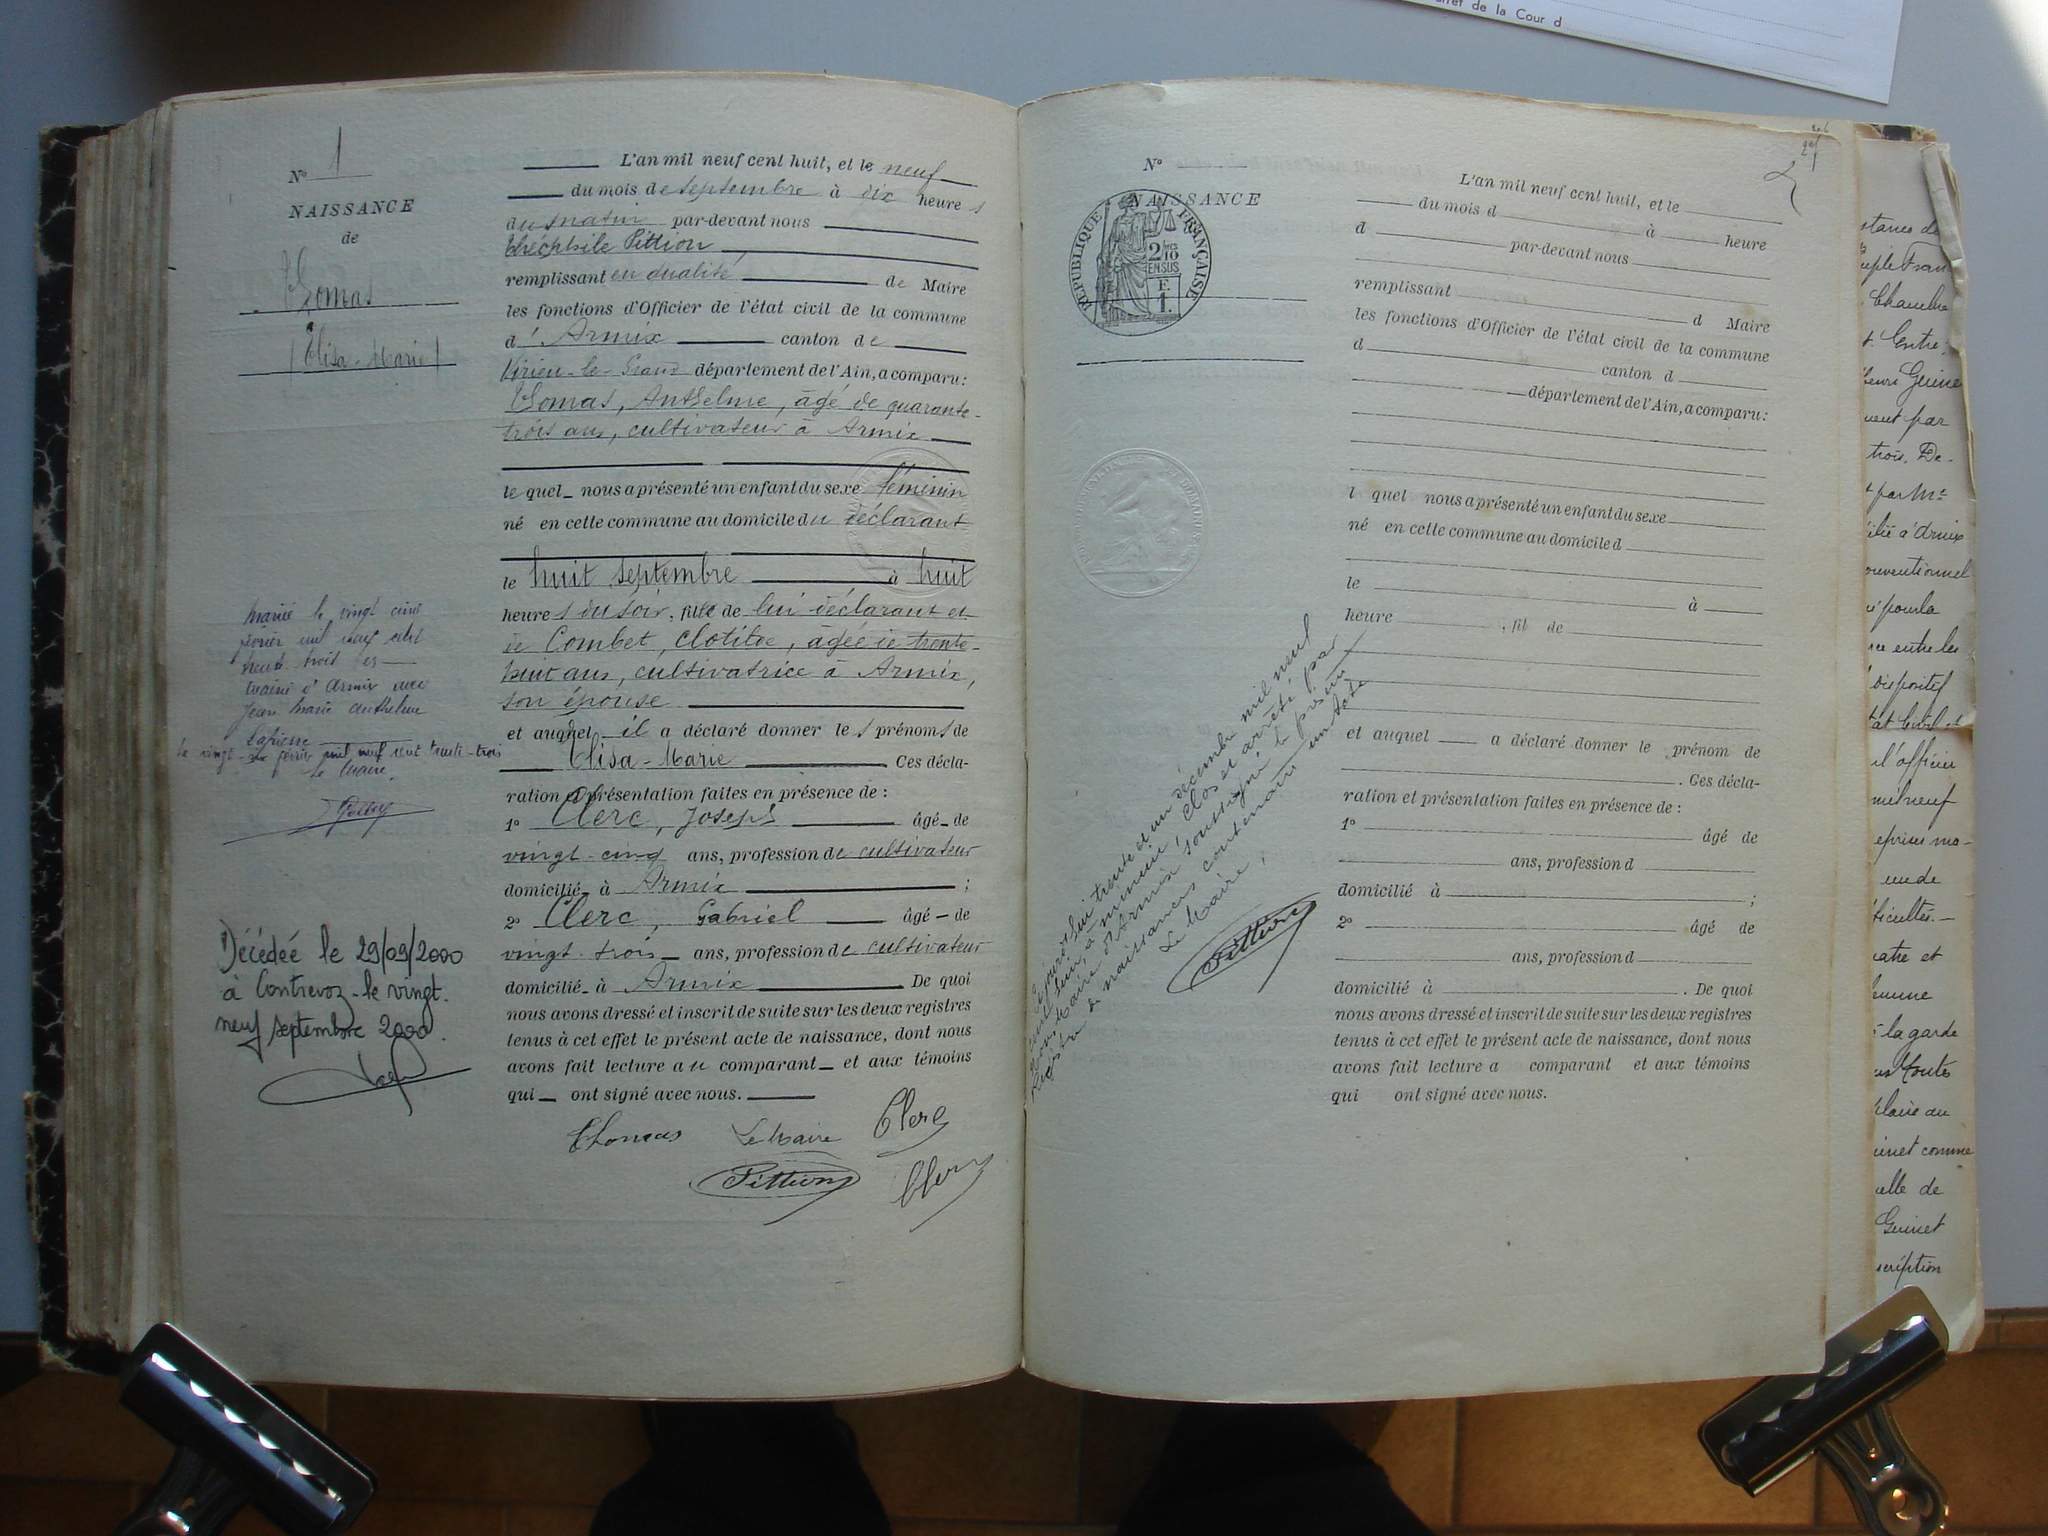 arrêt de la Cour d
N° 1
NAISSANCE
de
Thomas
(Elisa-Marie)
L'an mil neuf cent huit, et le neuf
du mois de septembre à dix heures
du matin par-devant nous
Théophile Pittion
remplissant en qualité de Maire
les fonctions d'Officier de l'état civil de la commune
d'Armix canton de
Virieu-le-Grand département de l'Ain, a comparu:
Thomas, Anthelme, âgé de quarante-
trois ans, cultivateur à Armix
lequel nous a présenté un enfant du sexe féminin
né en cette commune au domicile du déclarant
le huit septembre à huit
heures du soir, fille de lui déclarant et
de Combet, Clotilde, âgée de trente-
huit ans, cultivatrice à Armix,
son épouse
et auquel il a déclaré donner les prénoms de
Elisa-Marie Ces décla-
ration et présentation faites en présence de :
1° Clerc, Joseph âgé de
vingt-cinq ans, profession de cultivateur
domicilié à Armix ;
2° Clerc, Gabriel âgé de
vingt-trois ans, profession de cultivateur
domicilié à Armix De quoi
nous avons dressé et inscrit de suite sur les deux registres
tenus à cet effet le présent acte de naissance, dont nous
avons fait lecture au comparant et aux témoins
qui ont signé avec nous.
Thomas Le Maire Clerc
Pittion Clerc
Mariée le vingt cinq
février mil neuf cent
trente trois
mairie d'Armix avec
Jean Marie Anthelme
le vingt-six février mil neuf cent trente-trois
Le Maire
Décédée le 29/09/2000
à Contrevoz le vingt-
neuf septembre 2000.
N°
NAISSANCE
RÉPUBLIQUE FRANÇAISE
2/10
EN SUS
F.
1.
L'an mil neuf cent huit, et le
du mois d à heure
d par-devant nous
remplissant d Maire
les fonctions d'Officier de l'état civil de la commune
d canton d
département de l'Ain, a comparu:
l quel nous a présenté un enfant du sexe
né en cette commune au domicile d
le à
heure , fil de
et auquel a déclaré donner le prénom de
. Ces décla-
ration et présentation faites en présence de :
1° âgé de
ans, profession d
domicilié à ;
2° âgé de
ans, profession d
domicilié à . De quoi
nous avons dressé et inscrit de suite sur les deux registres
tenus à cet effet le présent acte de naissance, dont nous
avons fait lecture a comparant et aux témoins
qui ont signé avec nous.
Cejourd'hui trente et un décembre mil neuf
cent huit, à minuit, clos et arrêté par
nous Maire d'Armix soussigné le présent
registre de naissances contenant un acte
Le Maire,
Pittion
Chambre
Guine
par
trois. De-
par Me
à Armix
conventionnel
pour la
entre les
dispositif
état civil et
l'officier
mil neuf
de
et
la garde
toutes
au
comme
elle de
Guinet